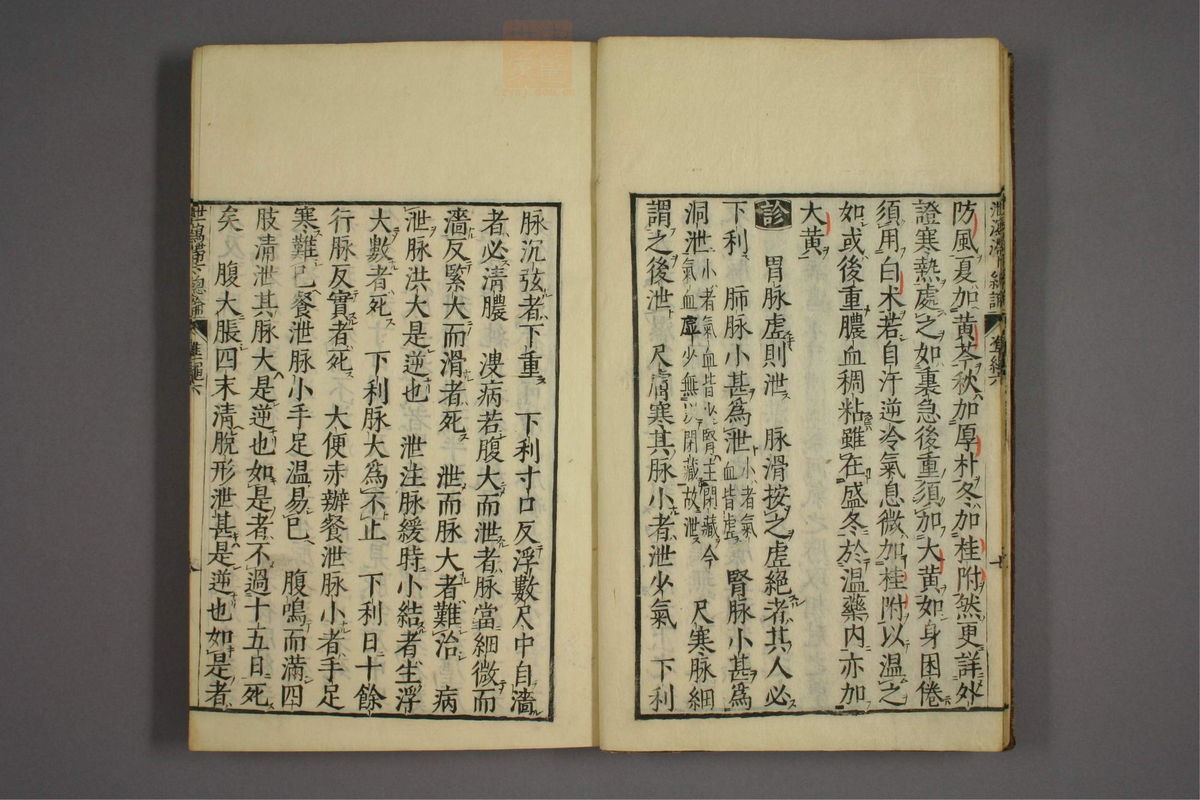 防風夏加黃芩秋加厚朴冬加桂附然更詳外
證寒熱處之如裏急後重須加大黃如身困倦
須用白术若自汗逆冷氣息微加桂附以溫之
如或後重膿血稠粘雖在盛冬於溫藥內亦加
大黃
診 胃脉虛則泄 脉滑按之虛絕者其人必
下利 肺脉小甚爲泄小者氣血皆虛 腎脉小甚爲
洞泄小者氣血皆少腎主閉藏今氣血虛少無以閉藏故泄 尺寒脉細
謂之後泄 尺膚寒其脉小者泄少氣 下利
脉沉弦者下重 下利寸口反浮數尺中自濇
者必清膿 溲病若腹大而泄者脉當細微而
濇反緊大而滑者死 泄而脉大者難治 病
泄脉洪大是逆也 泄注脉緩時小結者生浮
大數者死 下利脉大爲不止 下利日十餘
行脉反實者死 大便赤瓣飧泄脉小者手足
寒難已飧泄脉小手足溫易已 腹鳴而滿四
肢清泄其脉大是逆也如是者不過十五日死
矣 腹大脹四末清脫形泄甚是逆也如是者